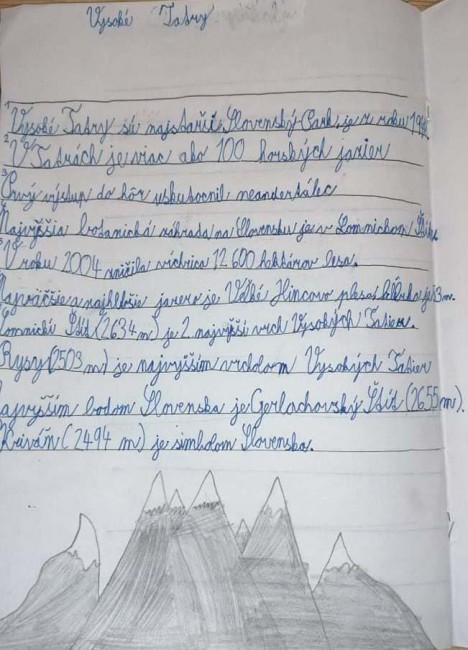 Vysoké Tatry
1 Vysoké Tatry sú najstarší Slovenský Park, je z roku 19
2 V Tatrách je viac ako 100 horských jazier
3 Prvý výstup do hôr uskutočnil neandertálec
Najvyššia botanická záhrada na Slovensku je v Lomnickom Štíte
V roku 2004 zničila víchrica 12 600 hektárov lesa.
Najväčšie a najhlbšie jazero je Veľké Hincovo pleso hĺbka je 53m.
Lomnický Štít (2634 m) je 2. najvyšší vrch Vysokých Tatier.
Rysy (2503 m) je najvyšším vrcholom Vysokých Tatier
ajvyšším bodom Slovenska je Gerlachovský Štít (2655 m).
Kriváň (2494 m) je simbolom Slovenska.